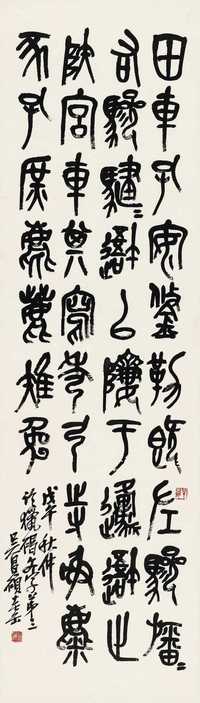 田車孔安鋚勒既左驂旛=
右驂騝=吾以隮于邍吾止
陜宮車其寫秀弓寺射麋
豕孔庶麀鹿雉兔
戊午秋仲
臨獵碣文字第三
吳昌碩老缶